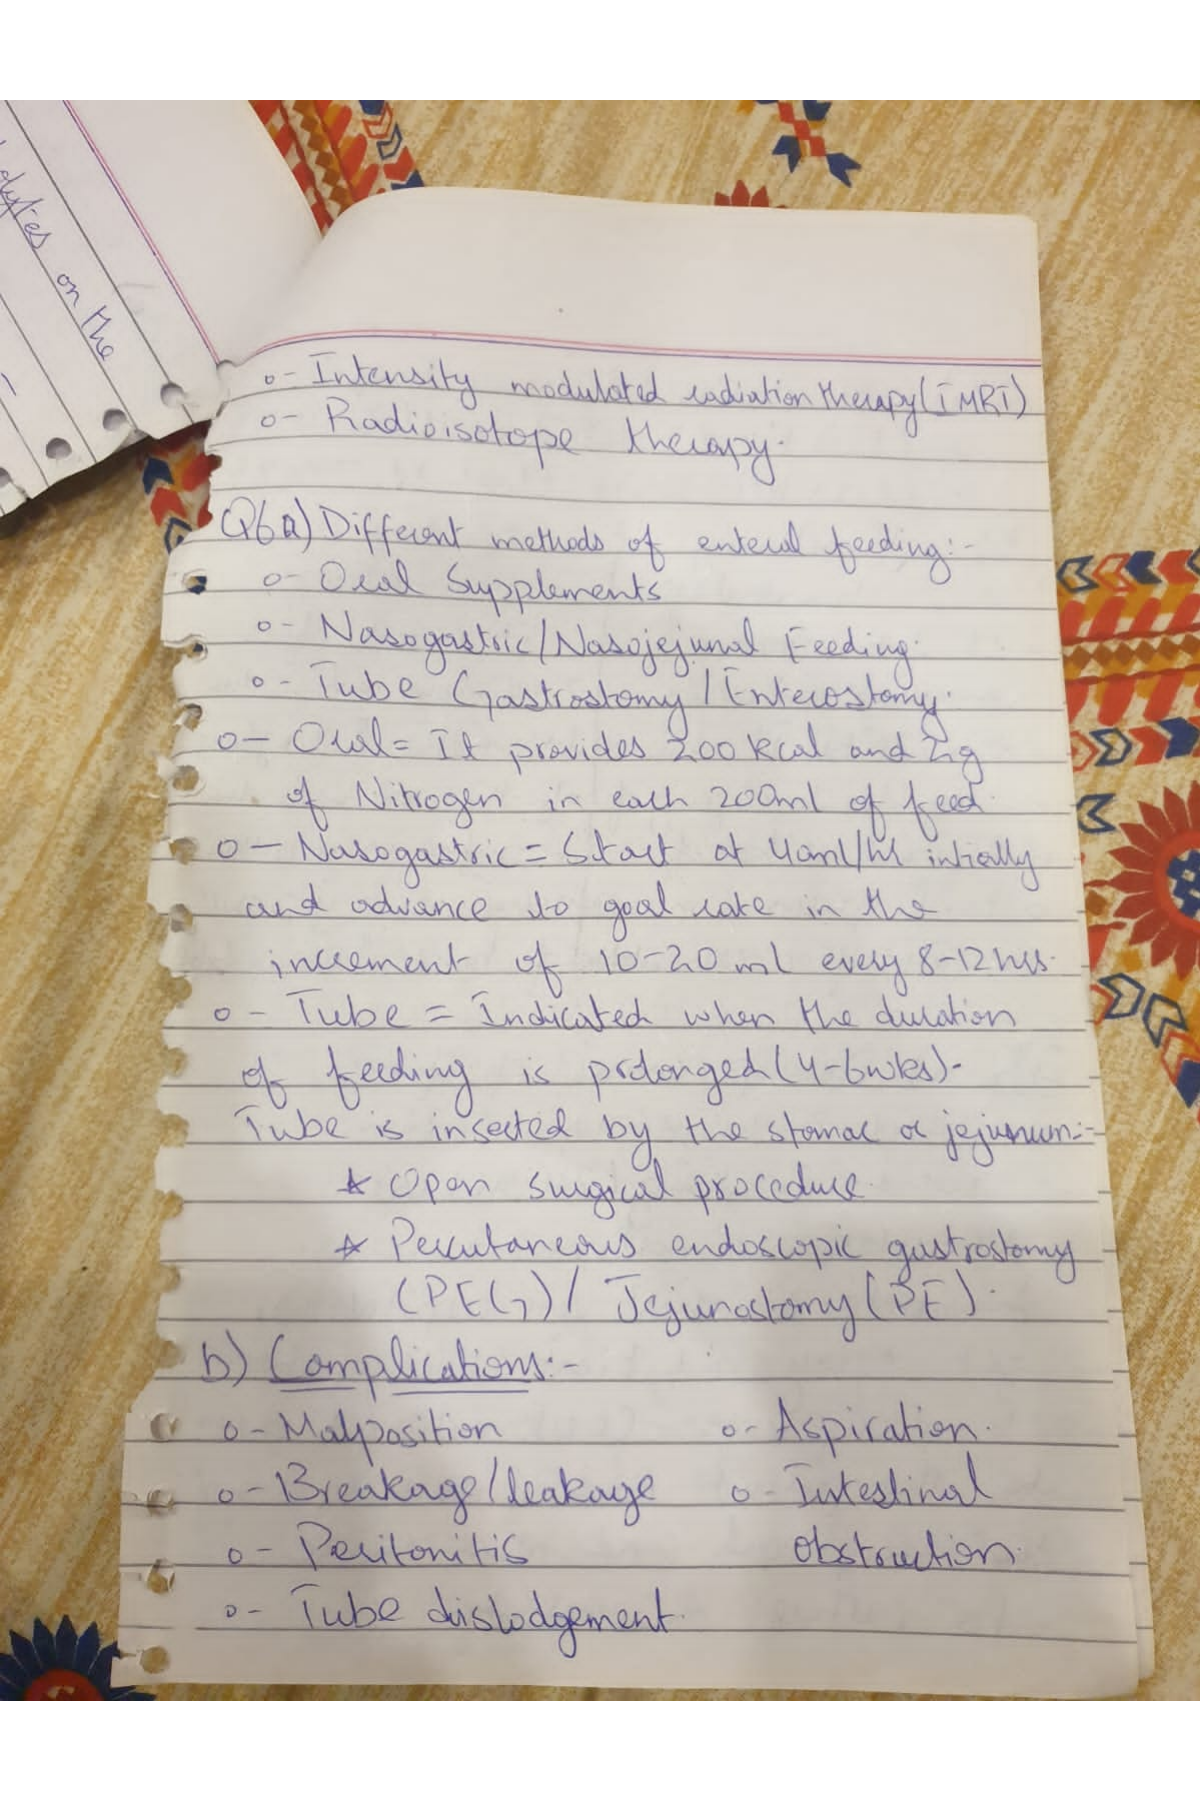 dytes on the
o- Intensity modulated radiation therapy (IMRT)
o- Radioisotope therapy.
Q6a) Different methods of enteral feeding:-
o- Oral Supplements
o- Nasogastric/Nasojejunal Feeding.
o- Tube Gastrostomy/Enterostomy.
o- Oral= It provides 200 kcal and 2g
of Nitrogen in each 200ml of feed.
o- Nasogastric = Start at 40ml/hr intially
and advance to goal rate in the
increment of 10-20 ml every 8-12 hrs.
o- Tube = Indicated when the duration
of feeding is prolonged (4-6wks)-
Tube is inserted by the stomac or jejunum:-
* Open surgical procedure.
* Percutaneous endoscopic gastrostomy
(PEG)/ Jejunostomy (PE).
b) Complications:-
o- Malposition o- Aspiration.
o- Breakage/leakage o- Intestinal
o- Peritonitis obstruction.
o- Tube dislodgement.